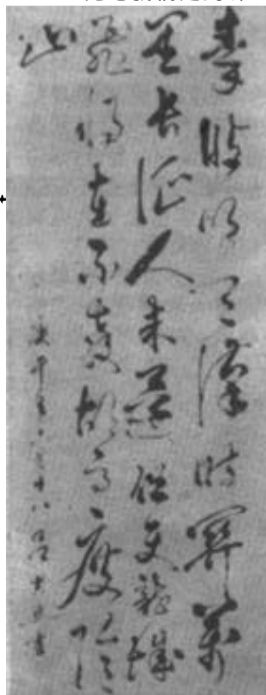 秦時明月漢時關萬
里長征人未還但使龍城
飛將在不教胡馬度陰
山